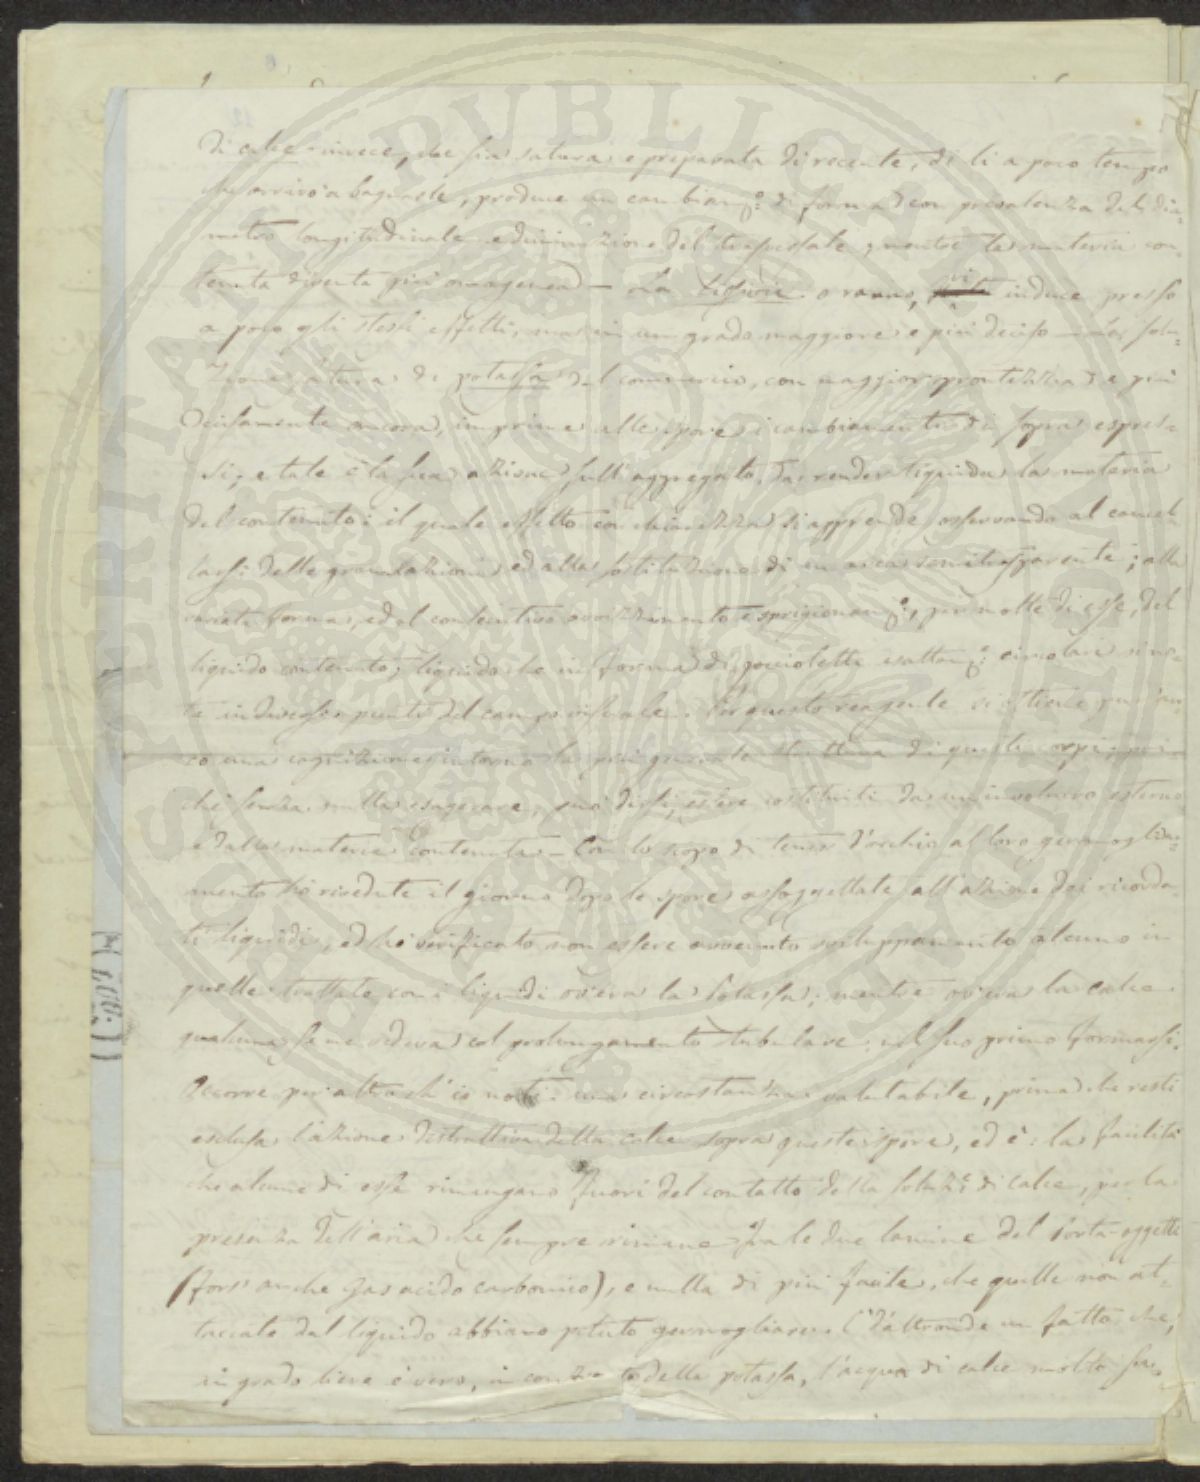 di calce invece, che sia satura e preparata di recente, di li a poco tempo
che arrivò a bagnarle, produce un cambiam.º di forma con prevalenza del dia-
metro longitudinale e diminuzione del trasversale, mentre la materia con-
tenuta diventa più omogenea — La lisciva o ranno, induce presso
a poco gli stessi effetti, ma in un grado maggiore e più deciso — La solu-
zione satura di potassa del commercio, con maggior prontezza e più
decisamente ancora, imprime alle spore i cambiamenti di sopra espres-
si, e tale è la sua azione sull'aggregato, da render liquida la materia
del contenuto: il quale effetto con chiarezza si apprende osservando al cancel-
larsi delle granulazioni ed alla sostituzione di un area semitrasparente; alla
variata forma, ed al consecutivo avvizzimento e sprigionam.º, per molte di esse, del
liquido contenuto; liquido che in forma di goccioletti esattam.e circolari
in diversi punti del campo visuale. Per questo reagente si ottiene pur an-
co una cognizione intorno la più generale struttura di questi corpi, poi-
chè senza nulla esagerare, può dirsi essere costituiti da un involucro esterno
e dalla materia contenuta — Con lo scopo di tener d'occhio al loro germoglia-
mento ho rivedute il giorno dopo le spore assoggettate all'azione dei ricorda-
ti liquidi, ed ho verificato non essere avvenuto sviluppamento alcuno in
quelle trattate con i liquidi ov'era la Potassa; mentre ov'era la calce
qualcuna se ne vedeva col prolungamento tubulare nel suo primo formarsi.
Occorre per altro ch'io noti una circostanza valutabile, prima che resti
esclusa l'azione distruttiva della calce sopra queste spore, ed è: la facilità
che alcune di esse rimangano fuori del contatto della soluz.e di calce, per la
presenza dell'aria che sempre rimane fra le due lamine del Porta-oggetti
(fors'anche gas acido carbonico), e nulla di più facile, che quelle non at-
taccate dal liquido abbiano potuto germogliare. È d'altronde un fatto che,
in grado lieve è vero, in confronto della potassa, l'acqua di calce molto